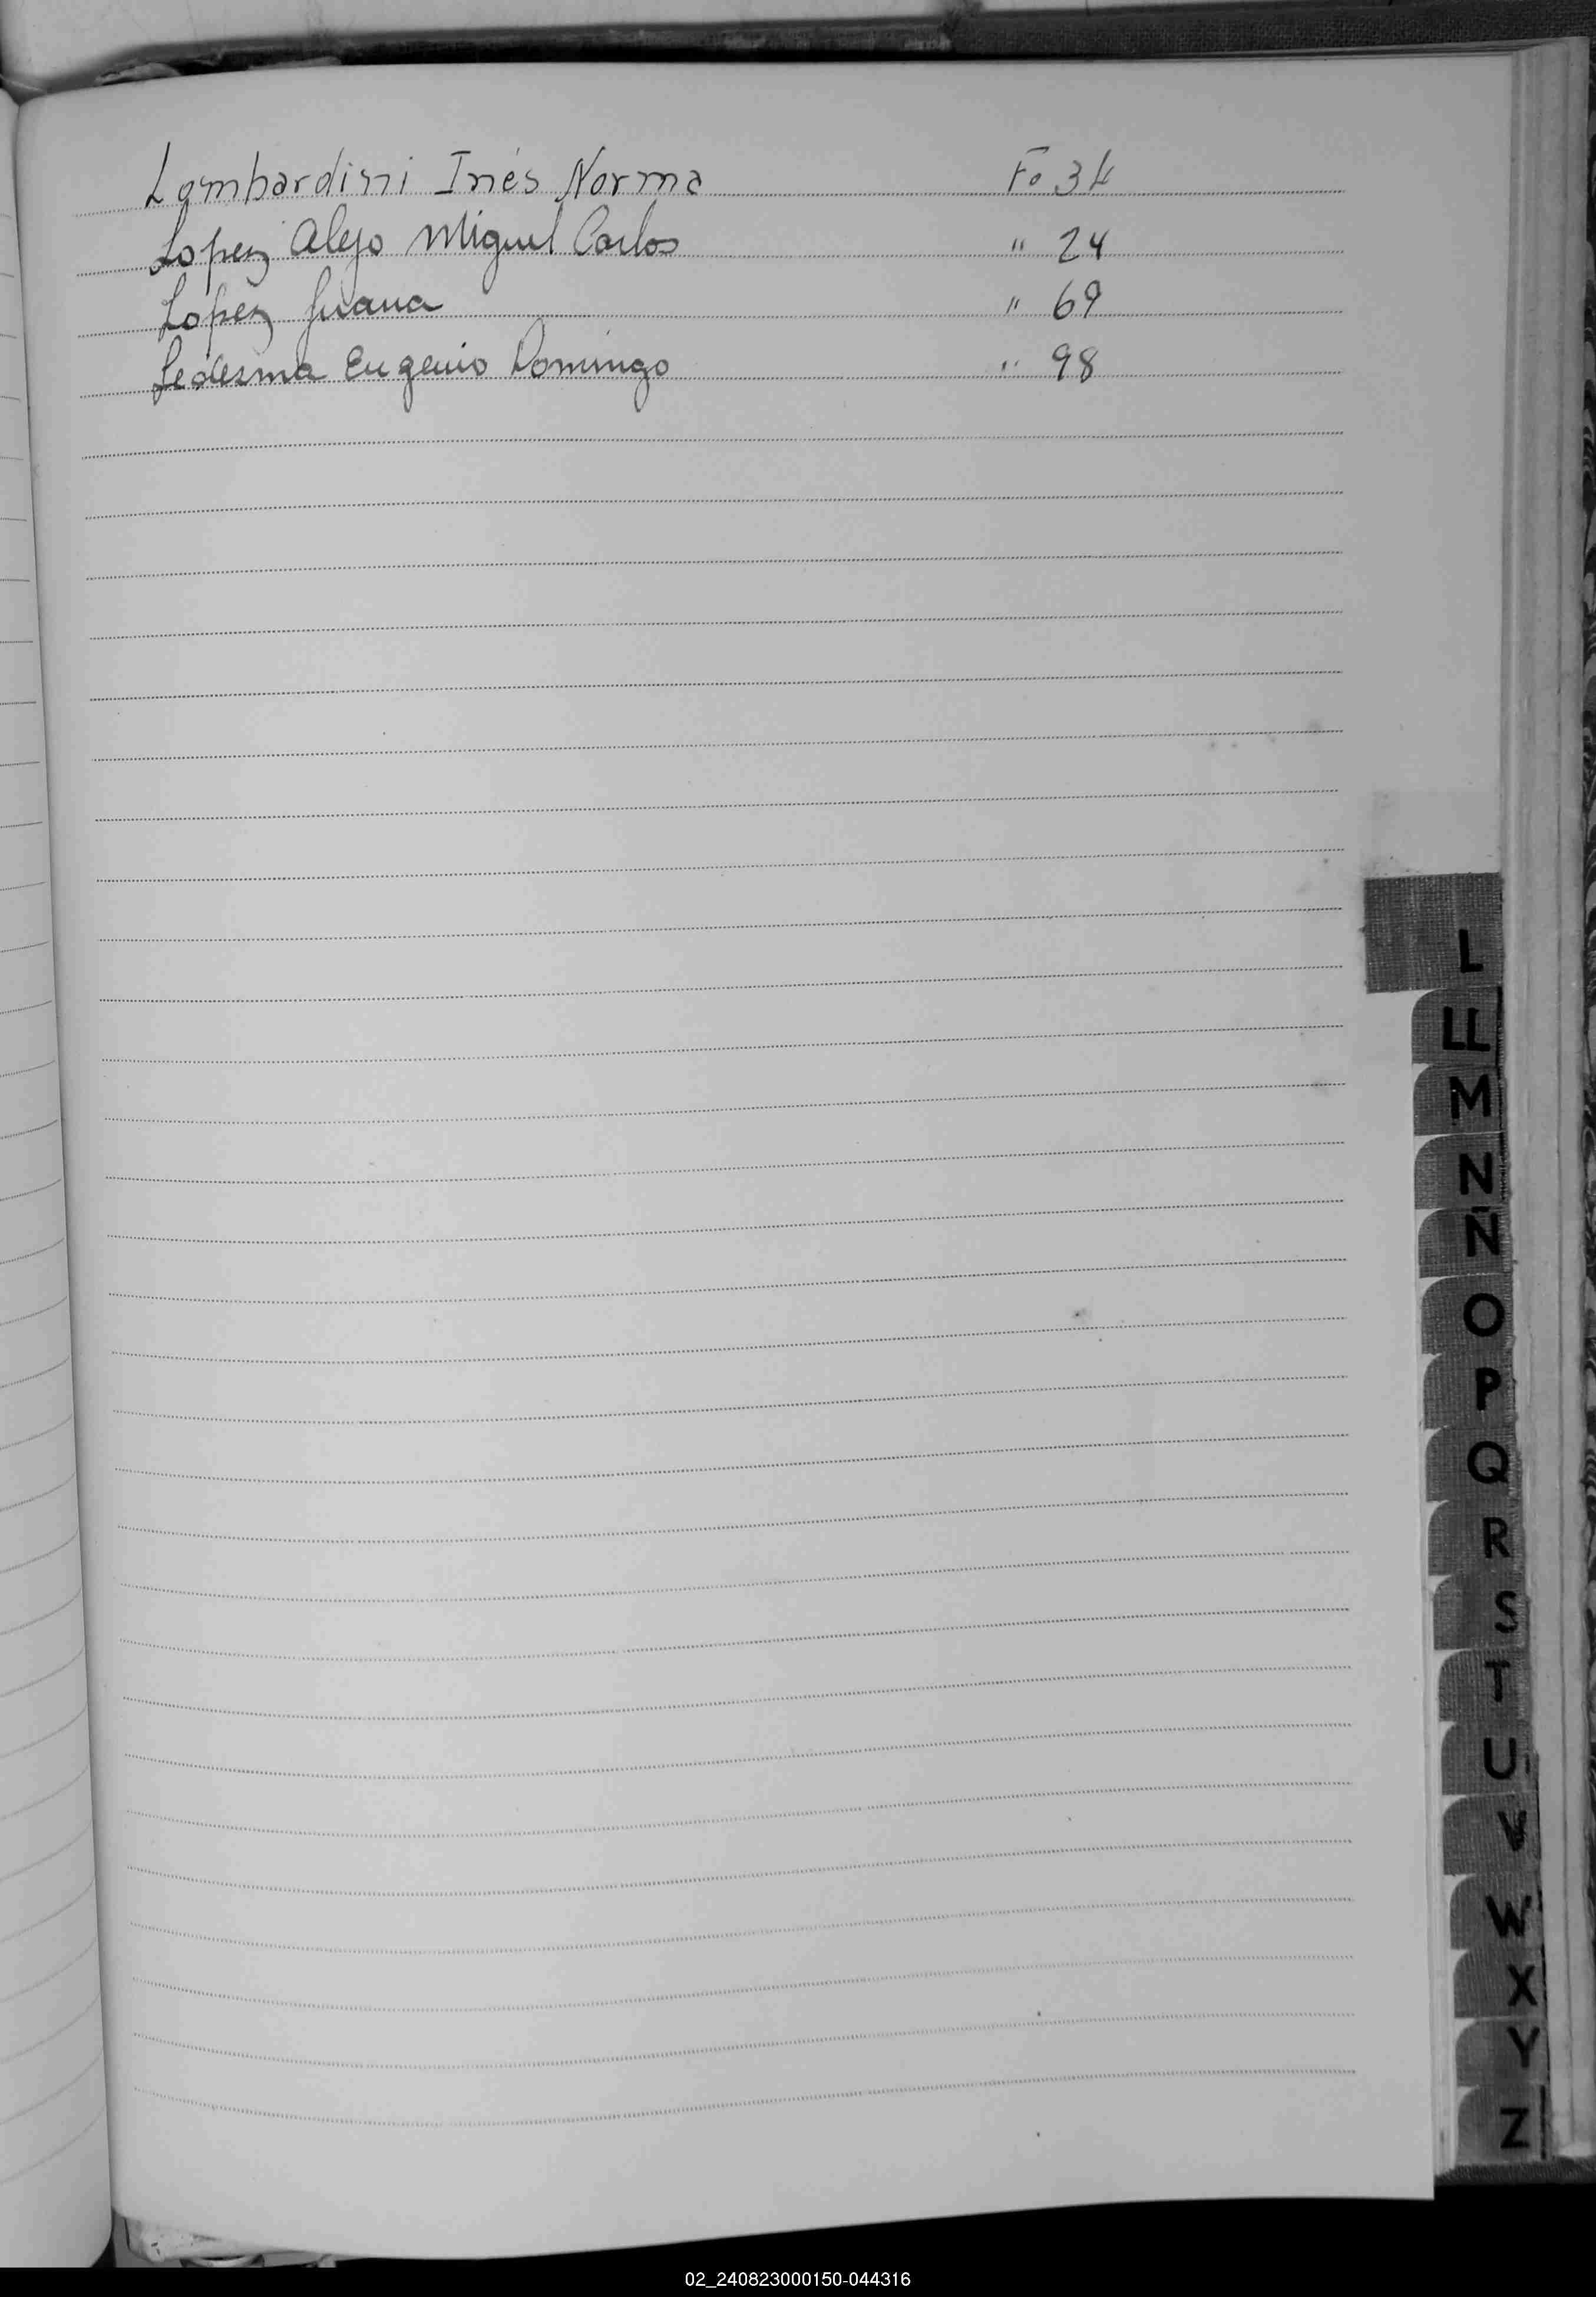 Lambardini Inés Norma Fo 34
Lopez Alejo Miguel Carlos " 24
Lopez Juana " 69
Ledesma Eugenio Domingo " 98
L
LL
M
N
Ñ
O
P
Q
R
S
T
U
V
W
X
Y
Z
02_240823000150-044316